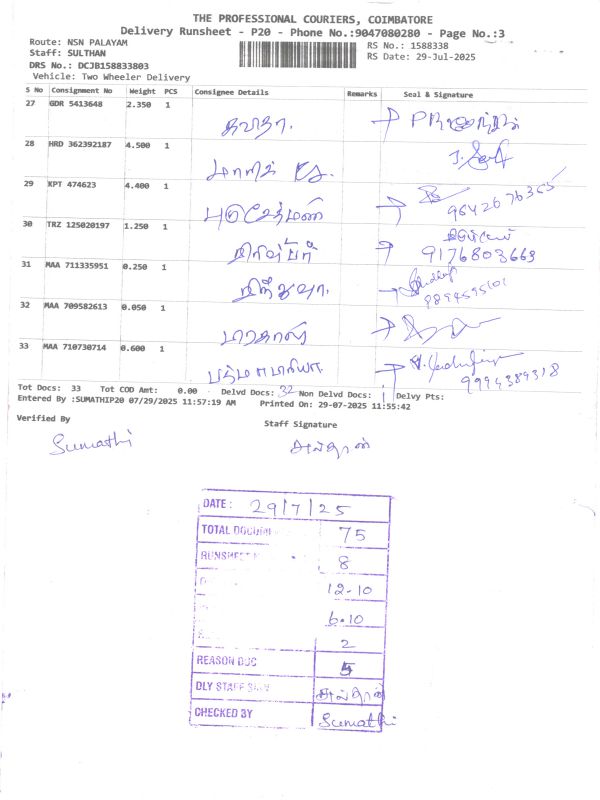 THE PROFESSIONAL COURIERS, COIMBATORE
Delivery Runsheet - P20 - Phone No.:9047080280 - Page No.:3
Route: NSN PALAYAM
RS No.: 1588338
Staff: SULTHAN
RS Date: 29-Jul-2025
DRS No.: DCJB158833803
Vehicle: Two Wheeler Delivery
S No Consignment No Weight PCS Consignee Details Remarks Seal & Signature
27 GDR 5413648 2.350 1 கவிதா.
28 HRD 362392187 4.500 1
29 KPT 474623 4.400 1 புதுசேத்மணி
9642676355
30 TRZ 125020197 1.250 1
9176803663
31 MAA 711335951 0.250 1
9894595101
32 MAA 709582613 0.050 1
33 MAA 710730714 0.600 1 பத்மாமாரியா.
9994389318
Tot Docs: 33 Tot COD Amt: 0.00 Delvd Docs: 32 Non Delvd Docs: 1 Delvy Pts:
Entered By :SUMATHIP20 07/29/2025 11:57:19 AM Printed On: 29-07-2025 11:55:42
Verified By Staff Signature
Sumathi சுல்தான்
DATE : 29/7/25
TOTAL DOCUME 75
RUNSHEET 8
12-10
6.10
2
REASON DOC 5
DLY STAFF SIGN சுல்தான்
CHECKED BY Sumathi